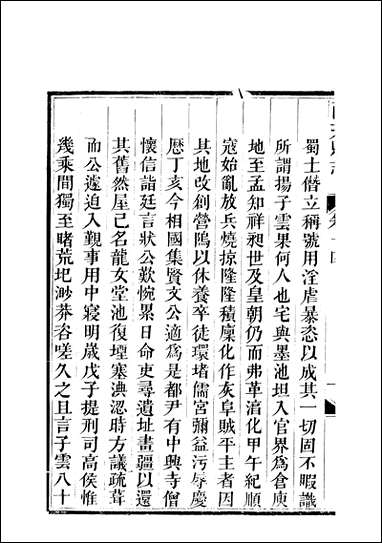 蜀土僭立稱號用淫虐暴恣以成其一切固不暇識
所謂揚子雲果何人也宅與墨池坦入官界爲倉庾
地至孟知祥昶世及皇朝仍而弗革淯化甲午紀順
寇始亂放兵燒掠隆隆積廩化作灰阜賊平主者因
其地改創營隝以休養卒徒環堵儒宮彌益污辱慶
厯丁亥今相國集賢文公適爲是都尹有中興寺僧
懷信詣廷言狀公歎惋累日命吏尋遺址畫疆以還
其舊然屋已名龍女堂池復堙塞洟涊時方議疏葺
而公遽迫入覲事用中寢明歲戊子提刑司高侯惟
幾乘間獨至睹荒圯渺莽咨嗟久之且言子雲八十